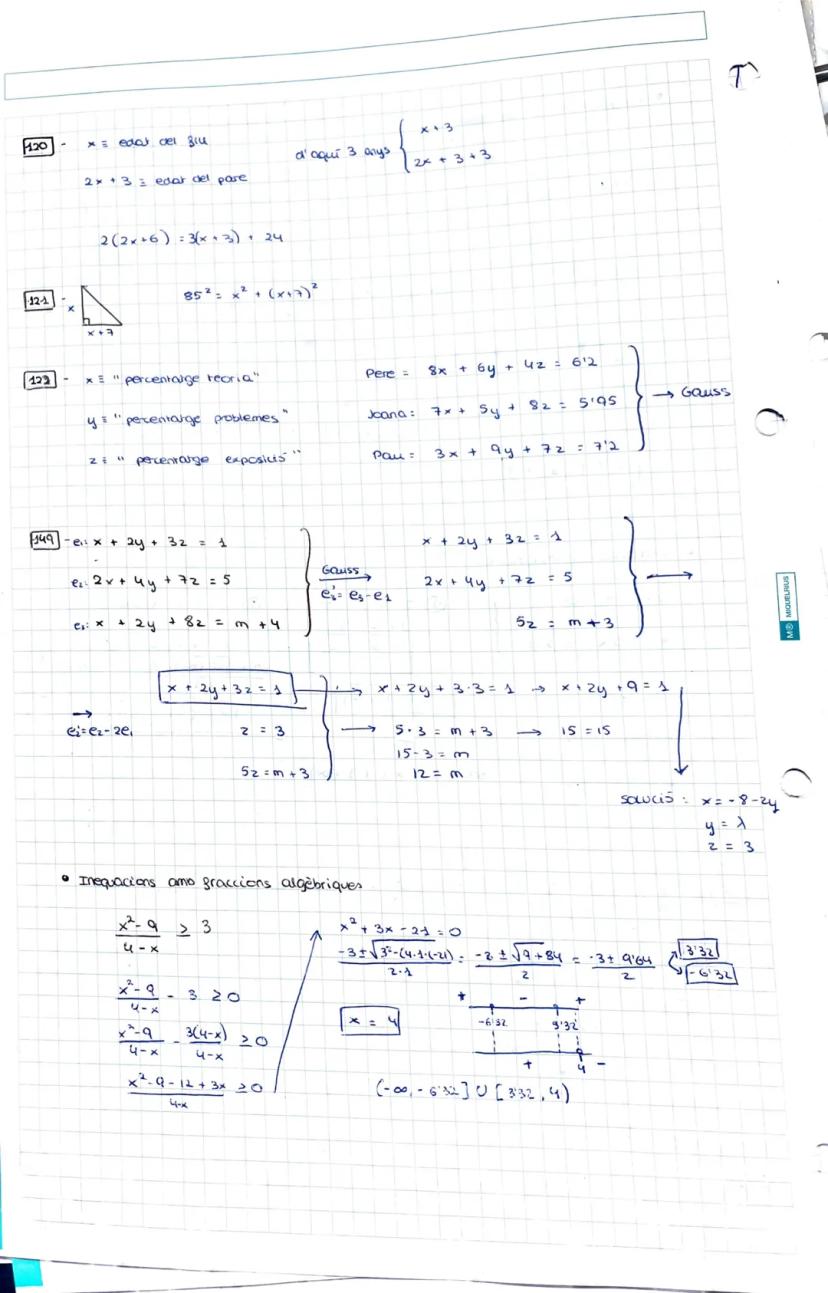 T
120 - x ≡ edat del fill
2x + 3 ≡ edat del pare
d'aquí 3 anys { x + 3
2x + 3 + 3
2(2x+6) = 3(x+3) + 24
121 - x
x+7
85² = x² + (x+7)²
122 - x ≡ "percentatge teoria"
y ≡ "percentatge problemes"
z ≡ "percentatge exposició"
Pere = 8x + 6y + 4z = 6'2
Joana: 7x + 5y + 8z = 5'95
Pau = 3x + 9y + 7z = 7'2
→ Gauss
149 - e₁: x + 2y + 3z = 1
e₂: 2x + 4y + 7z = 5
e₃: x + 2y + 8z = m + 4
Gauss
e₃' = e₃ - e₁
x + 2y + 3z = 1
2x + 4y + 7z = 5
5z = m + 3
→
e₂' = e₂ - 2e₁
x + 2y + 3z = 1 → x + 2y + 3·3 = 1 → x + 2y + 9 = 1
z = 3 → 5·3 = m + 3 → 15 = 15
15 - 3 = m
5z = m + 3
12 = m
solució: x = -8 - 2y
y = λ
z = 3
• Inequacions amb fraccions algèbriques
x² - 9 / 4 - x ≥ 3
x² - 9 / 4 - x - 3 ≥ 0
x² - 9 / 4 - x - 3(4-x) / 4 - x ≥ 0
x² - 9 - 12 + 3x / 4-x ≥ 0
x² + 3x - 21 = 0
-3 ± √3² - (4·1·(-21) / 2·1 = -3 ± √9 + 84 / 2 = -3 ± 9'64 / 2
3'32
-6'32
x = 4
+ - +
-6'32 3'32
+ 4 -
(-∞, -6'32] U [3'32, 4)
MIQUELRIUS